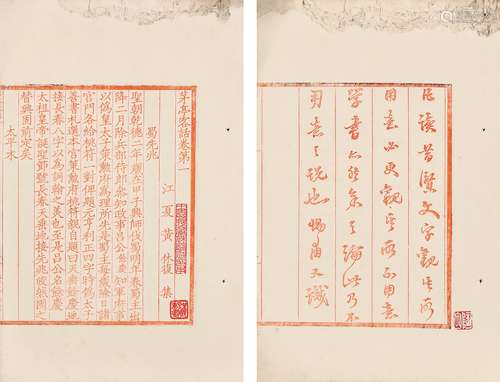 凡讀昔賢文字觀其所
用意必更觀其所不用意
學書亦然余之論此乃不
用意之說也惕甫又識
茅亭客話卷第一
江夏黃休復集
蜀先兆
聖朝乾德二年歲在甲子興師伐蜀明年春蜀主出
降二月除兵部侍郎參知政事呂公餘慶知軍府事
以偽皇太子策勳府為理所先是蜀主每歲除日諸
宮門各給桃符一對俾題元亨利正四字時偽太子
善書札選本宮策勳府桃符親自題曰天垂餘慶地
接長春八字以為詞翰之美也至是呂公名餘慶
太祖皇帝誕聖節號長春天垂地接先兆皎然國之
替興固前定矣
太平木